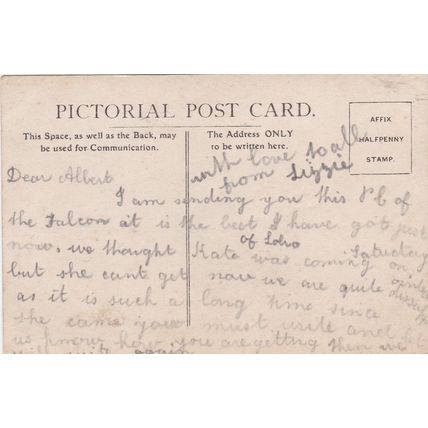 PICTORIAL POST CARD.
This Space, as well as the Back, may
be used for Communication.
The Address ONLY
to be written here.
AFFIX
HALFPENNY
STAMP.
with love to all
from Lizzie
Dear Albert
I am sending you this P C of
the Falcon at is the best I have got just
now, we thought Kate was coming on Saturday
but she cant get now we are quite
as it is such a long time since
she came you must write and let
us know how you are getting then we
again